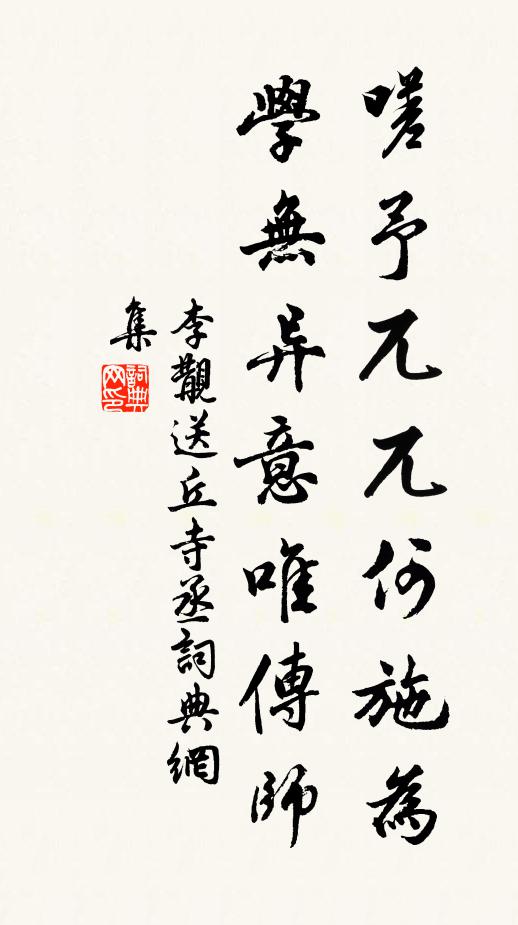 嗟予兀兀何施為
學無异意唯傳師
李覯送丘寺丞詞典網
集
詞典
网印